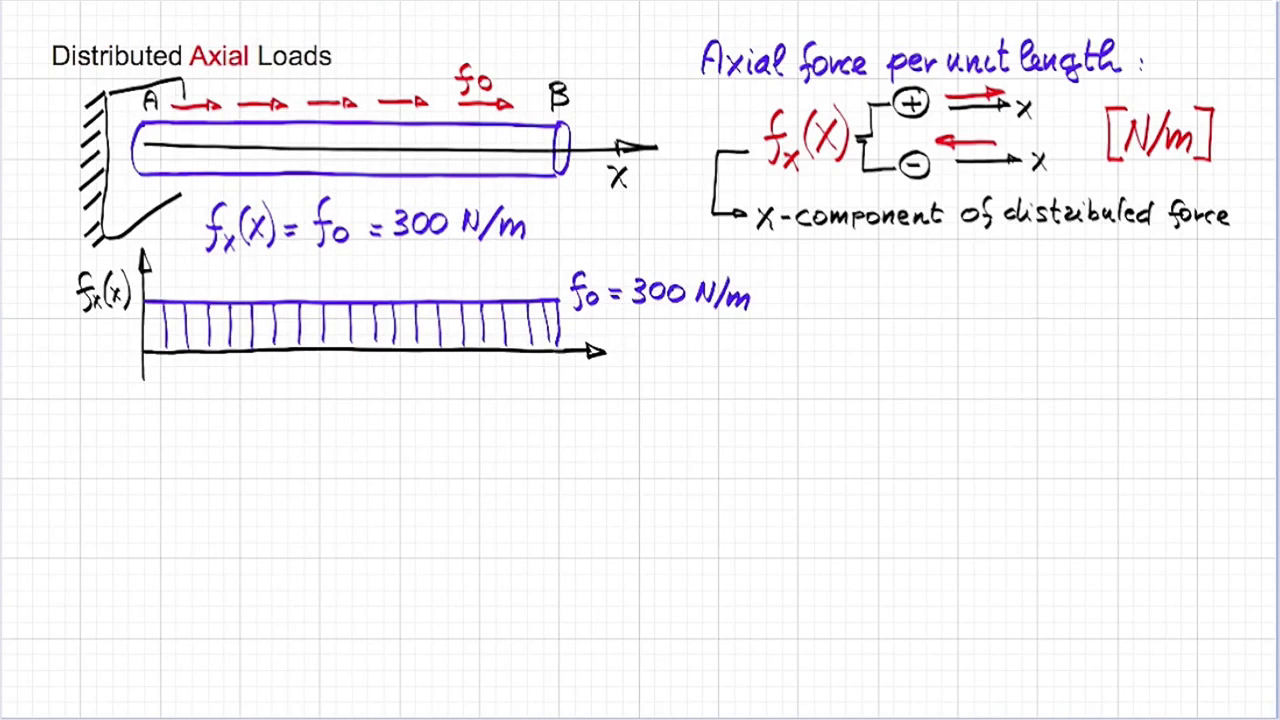 Distributed Axial Loads
A f0 B
x
fx(x) = f0 = 300 N/m
fx(x)
f0 = 300 N/m
Axial force per unit length:
fx(x) + x [N/m]
- x
x-component of distributed force